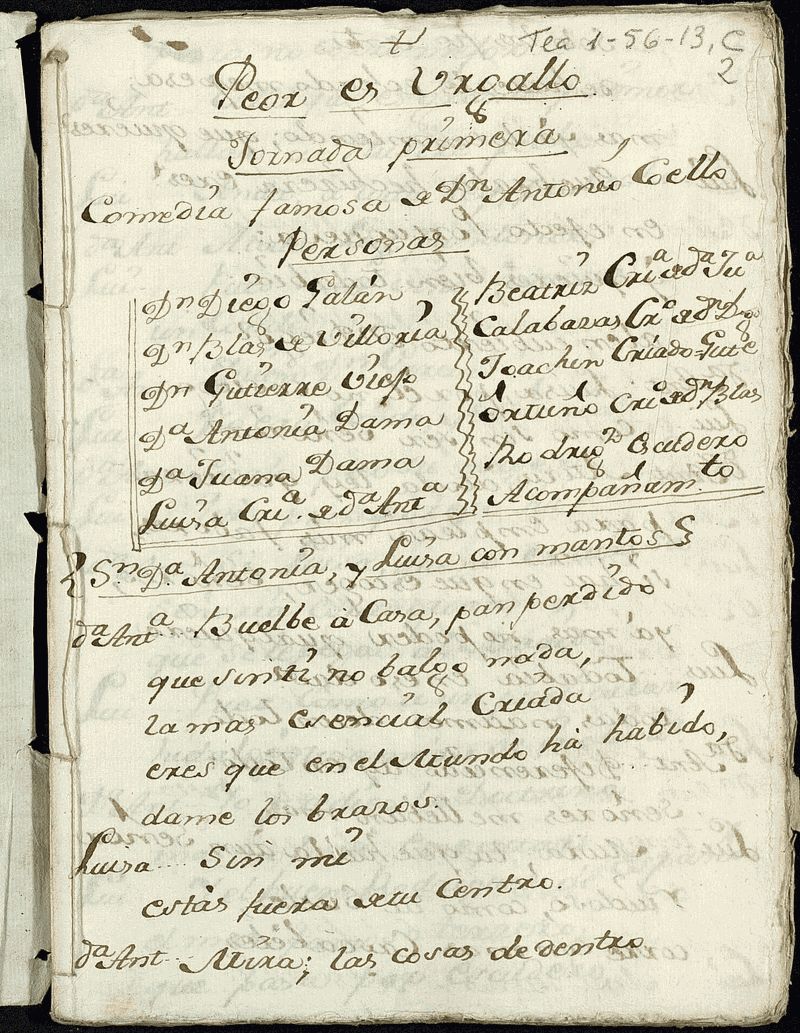 Tea 1-56-13, C
2
Peor es Urgallo
Jornada primera
Comedia famosa de Dn Antonio Coello
Personas
Dn Diego Galán
Dn Blas de Vittoria
Dn Gutierre Viejo
Da Antonia Dama
Da Juana Dama
Luisa Cria. de da Anta
Beatriz Cria de da Jua
Calabazas Cro de dn Dgo
Joachin Criado Gute
Ortuño Crio de dn Blas
Rodrigz Escudero
Acompañamto
Sn Da Antonia, y Luisa con mantos
da Anta Buelbe à Casa, pan perdido
que sin ti no balgo nada,
la mas esencial Criada
eres que en el Mundo hà habido,
dame los brazos.
Luisa Sin mi
estàs fuera de tu Centro.
da Ant Mira; las cosas de dentro